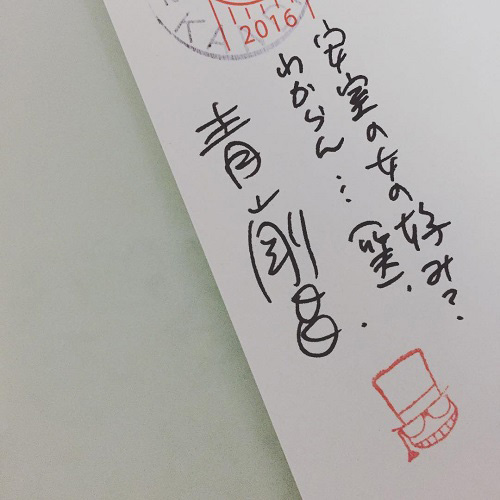 KA
2016
安室の女の好み?
わからん…(笑)、
青山剛昌.